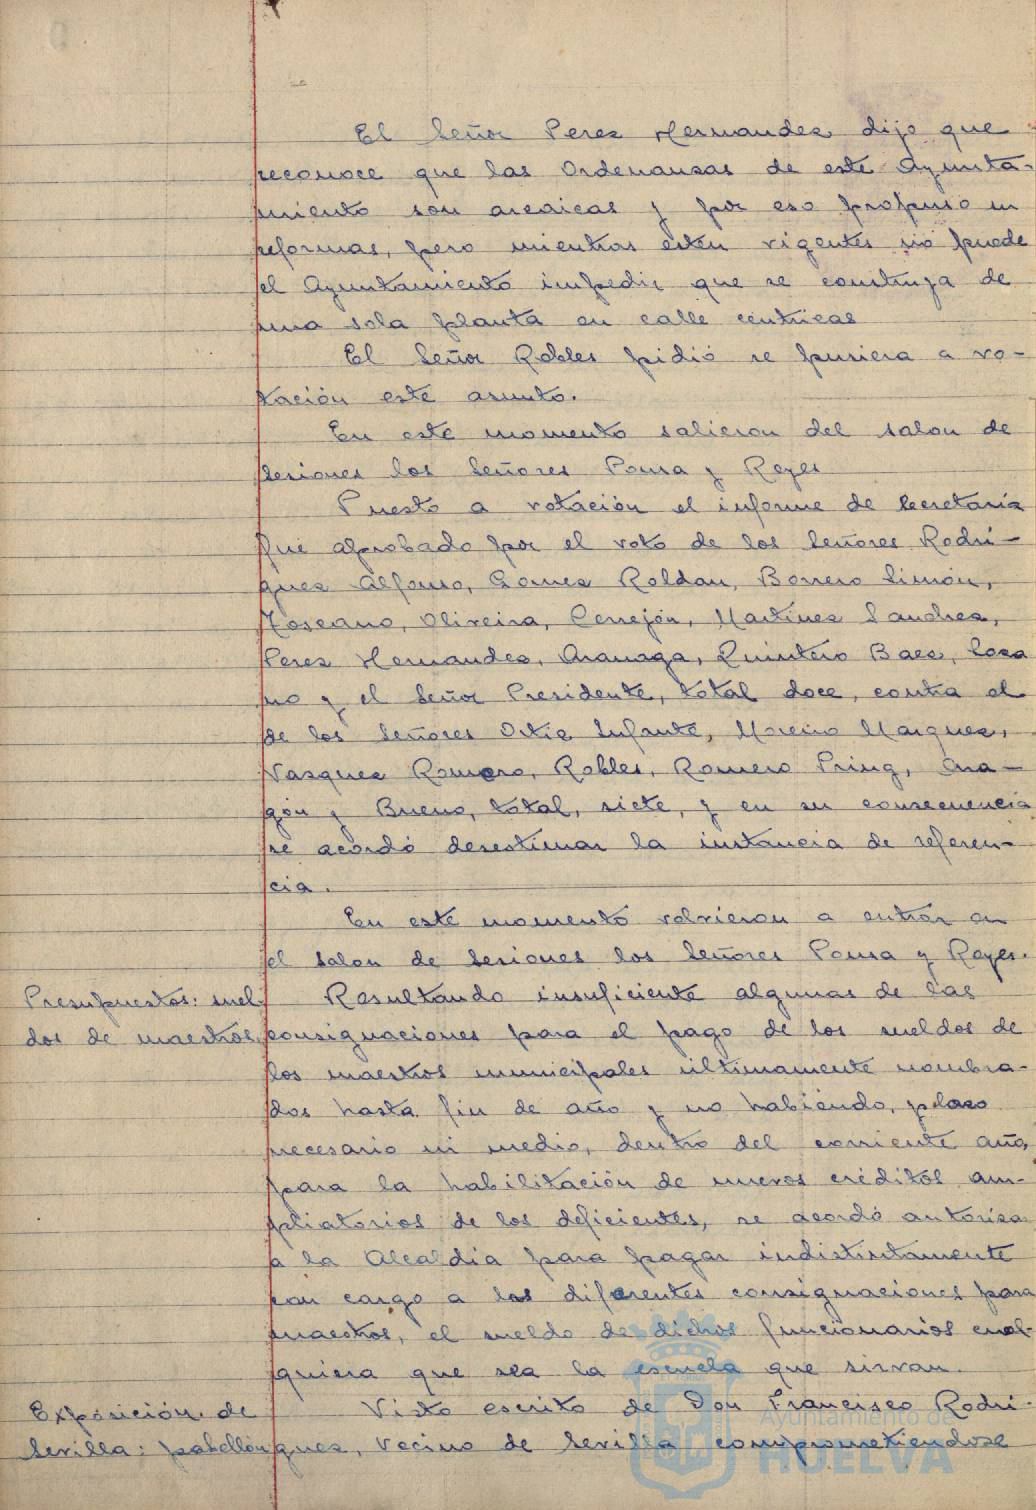 El Señor Peres Hernandes dijo que
reconoce que las Ordenansas de este Ayunta-
miento son arcaicas y por eso propuso su
reformas, pero mientras estén vigentes no puede
el Ayuntamiento impedir que se construya de
una sola planta en calle centricas
El Señor Robles pidió se pusiera a vo-
tación este asunto.
En este momento salieron del salon de
sesiones los Señores Pousa y Reyes
Puesto a votación el informe de Secretaría
fué aprobado por el voto de los Señores Rodri-
gues Alfonso, Gomes Roldan, Borrero Limón,
Toscano, Oliveira, Cerrejón, Martines Sanches,
Peres Hernandes, Aranaga, Quintero Baes, Losa
no y el Señor Presidente, total doce, contra el
de los Señores Ortis Infante, Moreno Marques,
Vasques Romero, Robles, Romero Pring, Ara-
gón y Bueno, total, siete, y en su consecuencia
se acordó desestimar la instancia de referen-
cia.
En este momento volvieron a entrar en
el salon de sesiones los Señores Pousa y Reyes.
Presupuestos: suel-
dos de maestros.
Resultando insuficiente algunas de las
consignaciones para el pago de los sueldos de
los maestros municipales ultimamente nombra-
dos hasta fin de año y no habiendo, plaso
necesario ni medio, dentro del corriente año,
para la habilitación de nuevos créditos am-
pliatorios de los deficientes, se acordó autorisa
a la Alcaldía para pagar indistintamente
con cargo a las diferentes consignaciones para
maestros, el sueldo de dichos funcionarios cual-
quiera que sea la escuela que sirvan.
Exposición de
Sevilla: pabellón
Visto escrito de Don Francisco Rodri-
gues, vecino de Sevilla comprometiendose
Ayuntamiento de
HUELVA